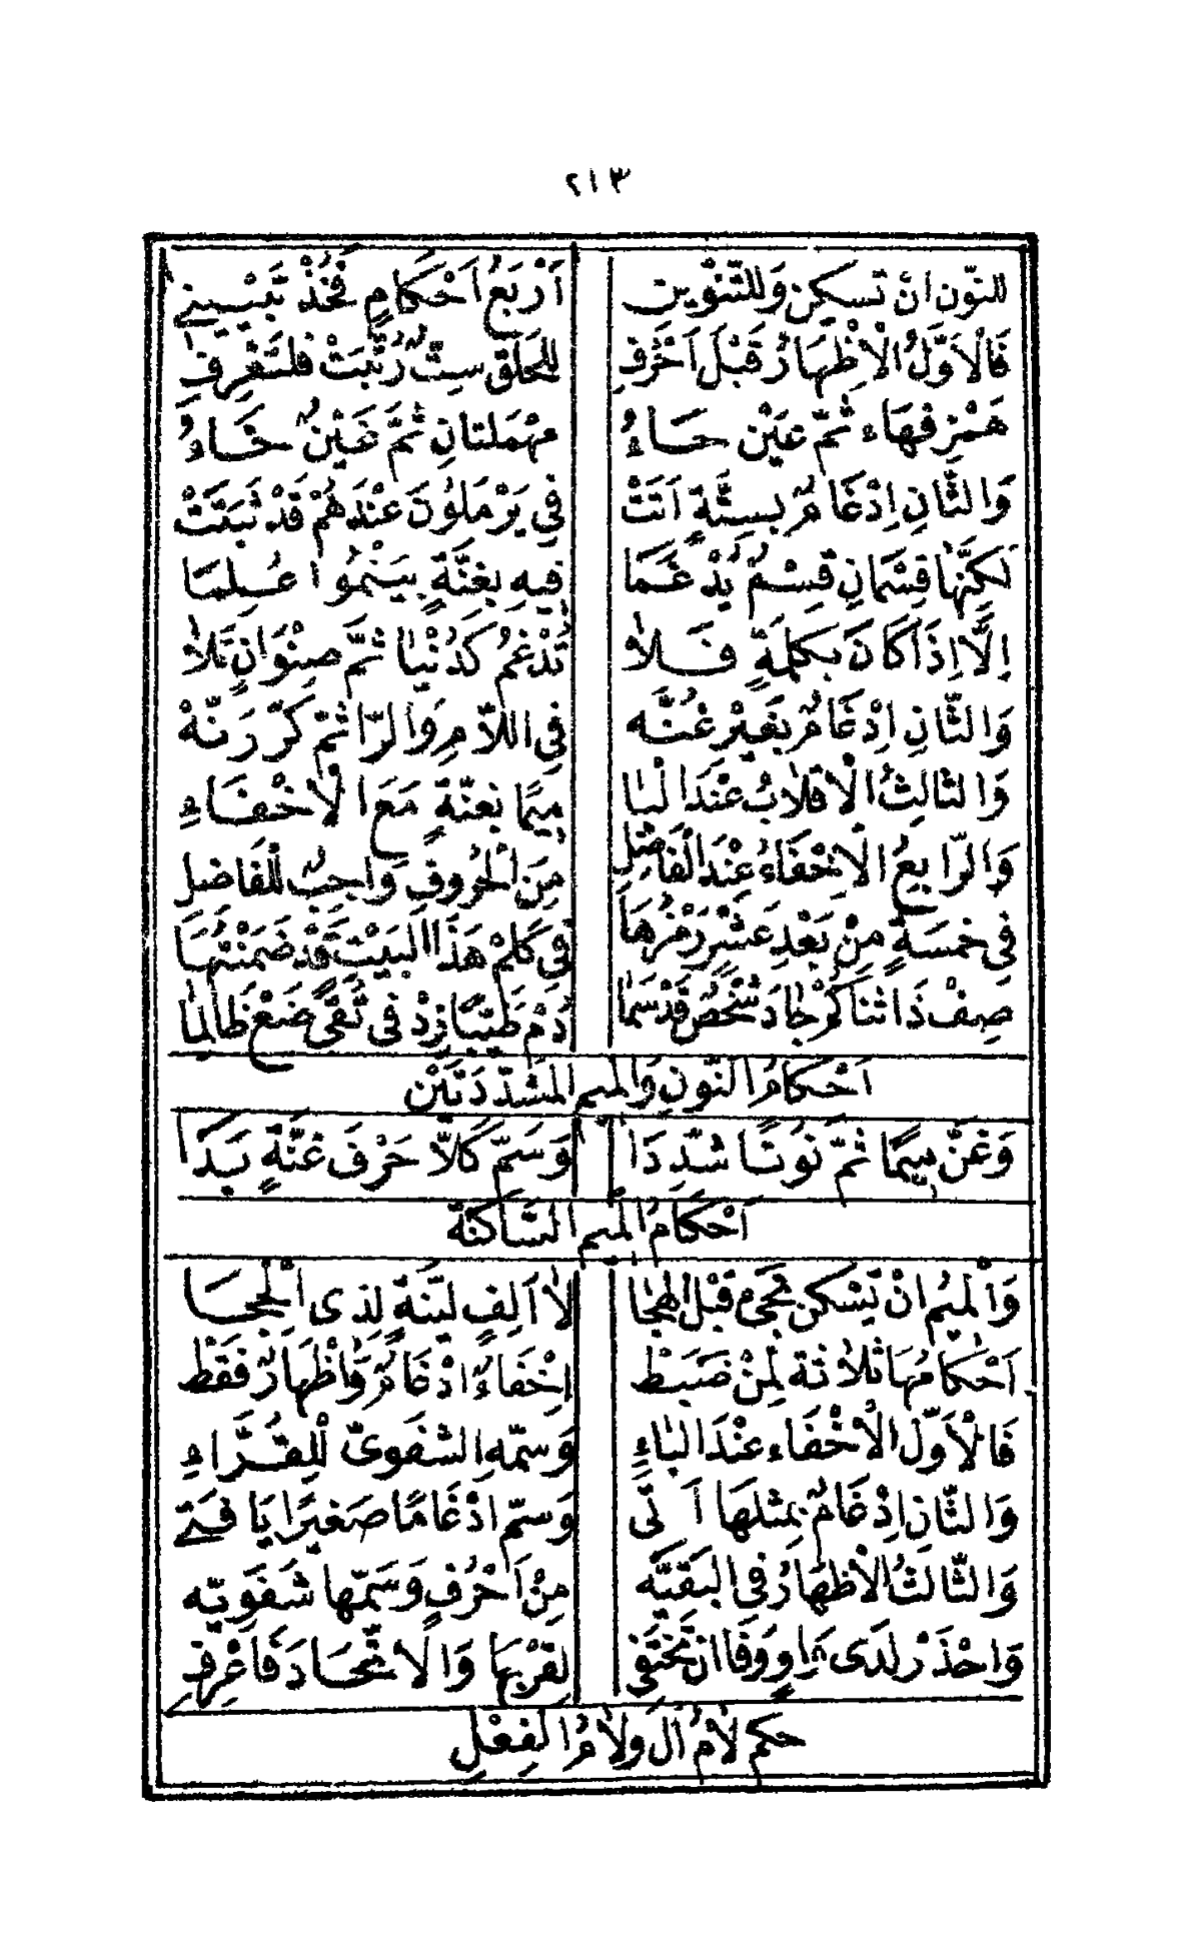 ٢١٣
للنّون ان تسكن وَللتّنْوين اَرْبَعُ اَحْكَامٍ فَخُذْ تَبْيِينِي
فَالْاَوَّلُ الْاِظْهَارُ قَبْلَ اَحْرُفِ لِلْحَلْقِ سِتٌّ رُتِّبَتْ فَلتَعْرِفِ
هَمْزٌ فَهَاء ثُمَّ عَيْنٌ حَاءُ مهْمَلتانِ ثُمَّ غَيْنٌ خَاءُ
وَالثَّانِ اِدْغَامٌ بِسِتَّةٍ اَتَتْ فِي يَرْمَلُونَ عِنْدَهُمْ قَدْ ثَبَتَتْ
لكِنَّهَا قِسْمَانِ قِسْمٌ يُدْغَمَا فِيهِ بِغُنَّةٍ بِيَنْمُوا عُلِمَا
اِلَّا اِذَا كَانَ بِكِلمَةٍ فَلاٰ تُدْغَمُ كَدُنْيَا ثُمَّ صِنْوَانٍ تَلاٰ
وَالثَّانِ اِدْغَامٌ بِغَيْرِ غُنَّه فِي اللاّمِ وَالرّا ثُمّ كَرِّرَنَّهْ
وَالثالِثُ الْاِقْلاٰبُ عِنْدَ الْبَا مِيمًا بِغُنّةٍ مَعَ الْاِخْفَاءِ
وَالرّابِعُ الْاِخْفَاءُ عِنْدَ الْفَاضِلِ مِنَ الْحُرُوفِ وَاجِبٌ لِلْفَاضِل
فِي خمسَةٍ مِنْ بَعْدِ عَشْرٍ رَمْزُهَا فِي كِلمْ هَذَا البَيْتِ قَدْ ضَمَّنْتُهَا
صِفْ ذَا ثَنَا كَمْ جَادَ شَخْصٌ قَدْ سَمَا دُمْ طَيِّبًا زِدْ فِي تُقًى ضَعْ ظَالِمَا
اَحْكَامُ النّونِ وَالميم المشَدّدَتَيْنِ
وَغُنَّ مِيمًا ثُمَّ نُونًا شُدِّدَا وَسَمِّ كُلاًّ حَرْفَ غُنَّةٍ بَدَا
اَحْكَامُ الْميم السّاكنَة
وَالْمِيمُ اِنْ تَسْكن تَجِى قَبْلَ الهِجَا لاٰ اَلِفٍ لَيِّنَةٍ لِذِى الْحِجَا
اَحْكَامُهَا ثَلاٰثَة لِمَنْ ضَبَطْ اِخْفَاءٌ ادْغَامٌ وَاظْهَارٌ فَقَطْ
فَالْاَوّل الْاِخْفَاء عِنْدَ الْبَاءِ وَسَمّهِ الشفَوىّ لِلْقُرَّاءِ
وَالثّانِ اِدْغَامٌ بِمثلهَا اَتَى وَسَمّ ادْغَامًا صَغِيرًا يَا فَتَى
وَالثّالثُ الْاِظْهَارُ فِى الْبَقِيَّه مِنْ اَحْرُفٍ وَسَمّها شَفَوِيّه
وَاحْذَرْ لَدَى وَاوٍ وَفَا ان تَخْتَفِي لِقُرْبِهَا وَالْاِتّحَادَ فَاعْرِفِ
حكم لاٰمُ اَلْ وَلاٰمُ الْفِعْلِ